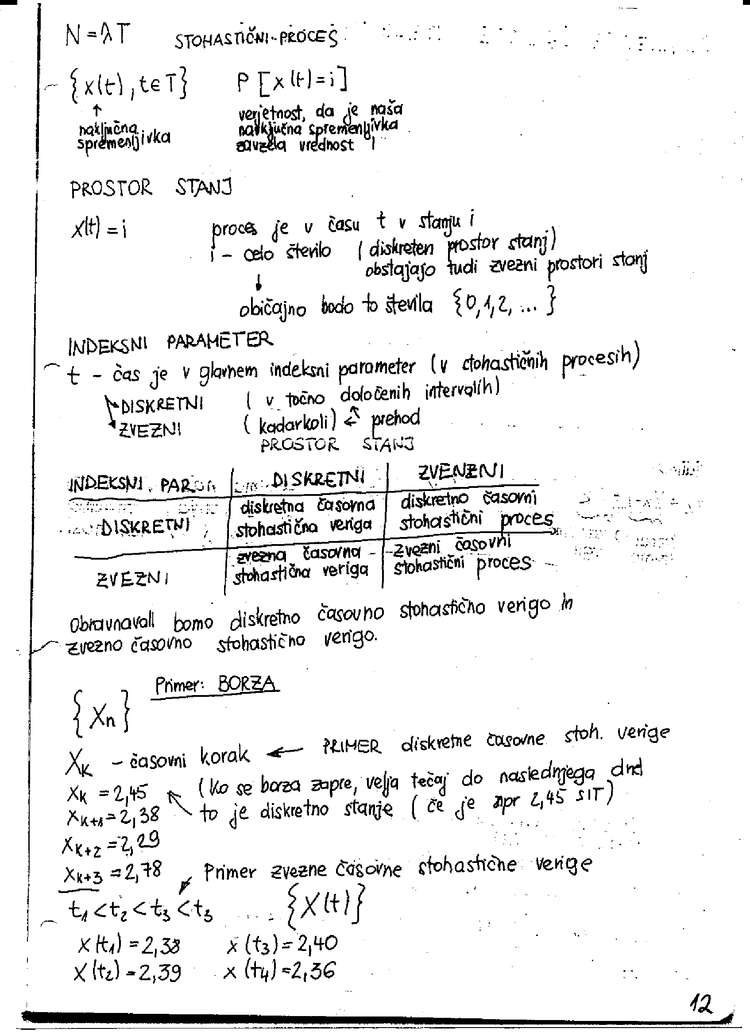 N = λT STOHASTIČNI PROCES
{x(t), t∈T} P [x(t)=i]
↑
naključna spremenljivka
verjetnost, da je naša
naključna spremenljivka
zavzela vrednost i
PROSTOR STANJ
x(t) = i proces je v času t v stanju i
i - celo število (diskreten prostor stanj)
obstajajo tudi zvezni prostori stanj
↓
običajno bodo to števila {0,1,2, ...}
INDEKSNI PARAMETER
t - čas je v glavnem indeksni parameter (v stohastičnih procesih)
DISKRETNI (v točno določenih intervalih)
ZVEZNI (kadarkoli) prehod
PROSTOR STANJ
INDEKSNI PAR. DISKRETNI ZVENZNI
DISKRETNI diskretna časovna stohastična veriga diskretno časovni stohastični proces
ZVEZNI zvezna časovna stohastična veriga zvezni časovni stohastični proces
Obravnavali bomo diskretno časovno stohastično verigo in
zvezno časovno stohastično verigo.
Primer: BORZA
{Xn}
XK - časovni korak ← PRIMER diskretne časovne stoh. verige
XK = 2,45 (ko se borza zapre, velja tečaj do naslednjega dne
XK+1 = 2,38 to je diskretno stanje (če je npr 2,45 SIT)
XK+2 = 2,29
XK+3 = 2,78 Primer zvezne časovne stohastične verige
t1 < t2 < t3 < t3 {X(t)}
X(t1) = 2,38 X(t3) = 2,40
X(t2) = 2,39 X(t4) = 2,36
12